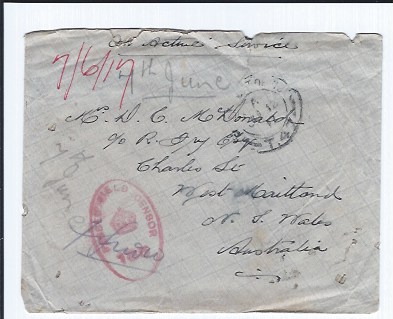 On Active Service
7/6/17
7th June
Mr. D. C. McDonald
c/o R. Ivy Esq
Charles St
West Maitland
N. S. Wales
Australia
7/6
June
FIELD CENSOR